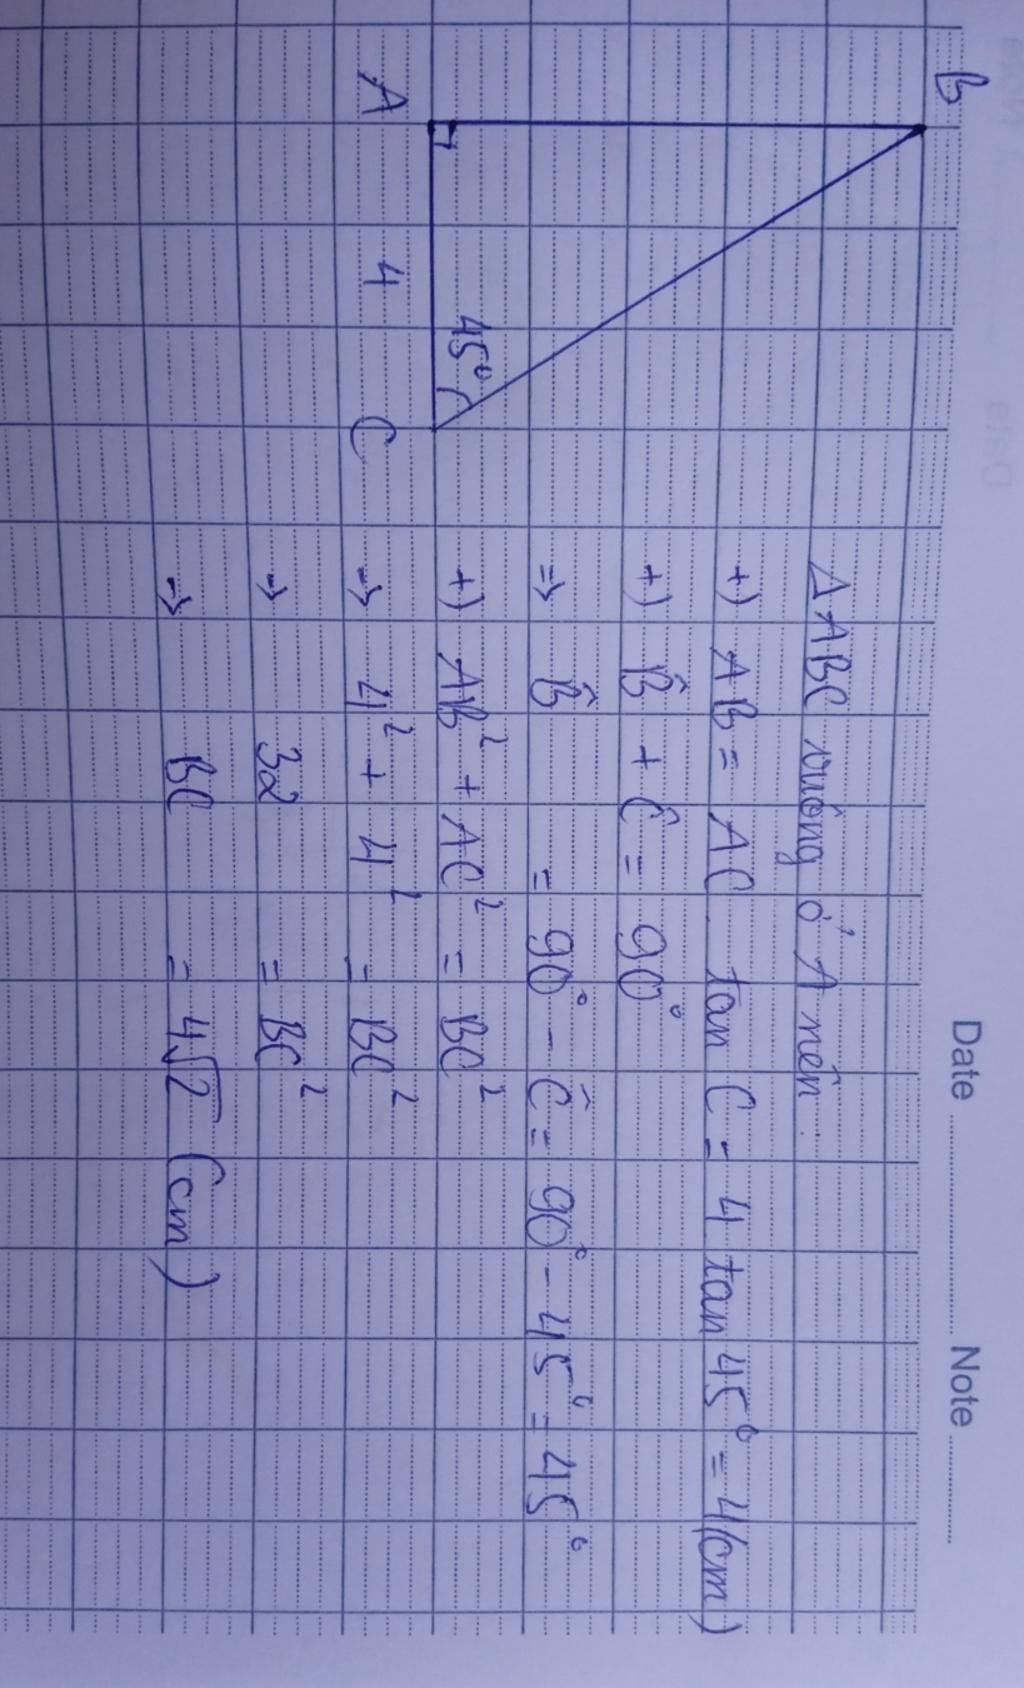 Date Note
B
A 4 C
45°
ΔABC vuông ở A nên:
+) AB = AC. tan C = 4 tan 45° = 4(cm)
+) B̂ + Ĉ = 90°
⇒ B̂ = 90° - Ĉ = 90° - 45° = 45°
+) AB² + AC² = BC²
→ 4² + 4² = BC²
→ 32 = BC²
→ BC = 4√2 (cm)